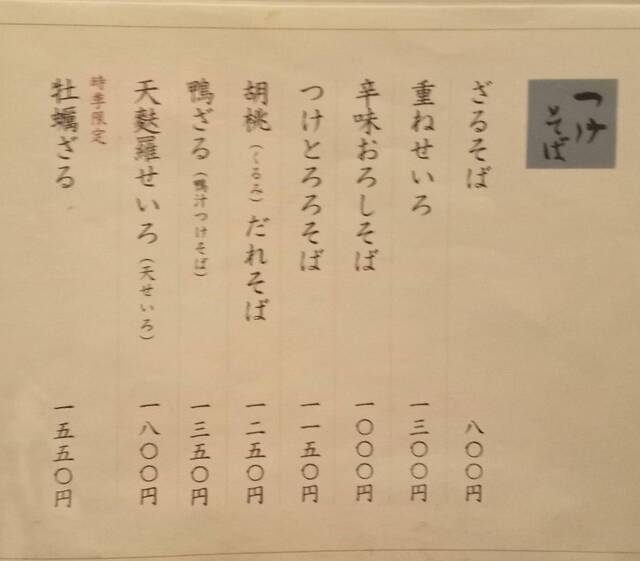 つけそば
ざるそば 八〇〇円
重ねせいろ 一三〇〇円
辛味おろしそば 一〇〇〇円
つけとろろそば 一一五〇円
胡桃（くるみ）だれそば 一二五〇円
鴨ざる（鴨汁つけそば） 一三五〇円
天麩羅せいろ（天せいろ） 一八〇〇円
時季限定
牡蠣ざる 一五五〇円